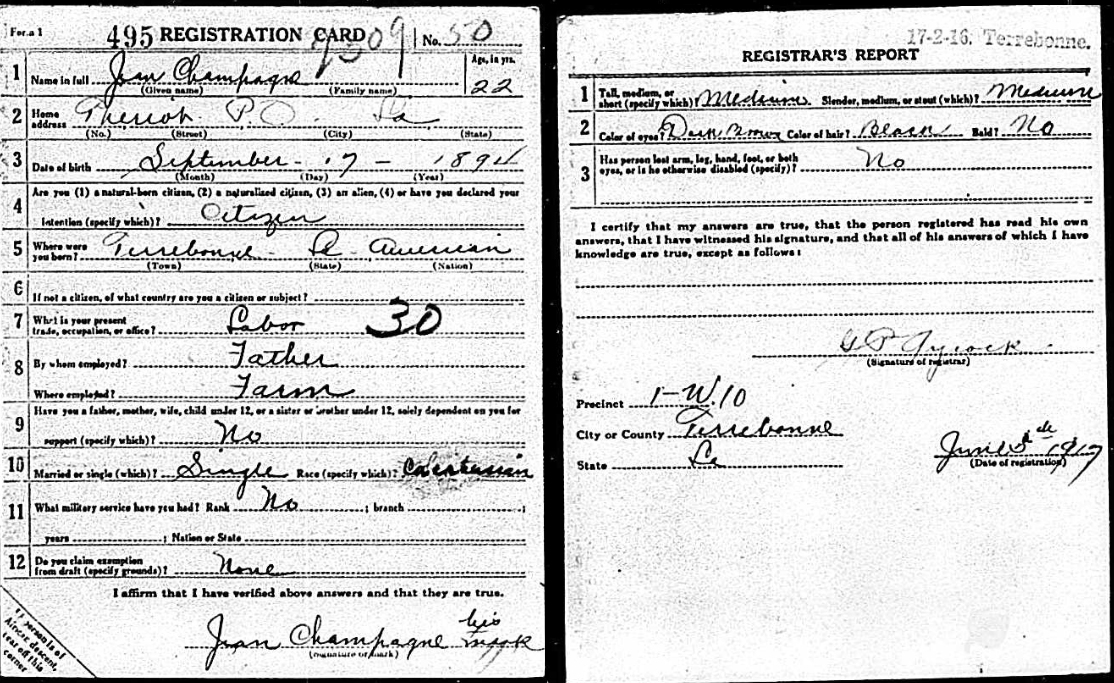 Form 1
495 REGISTRATION CARD No. 50
1 Name in full Jean Champagne Age, in yrs.
(Given name) (Family name) 22
2 Home address Theriot P.O. La
(No.) (Street) (City) (State)
3 Date of birth September - 17 - 1894
(Month) (Day) (Year)
4 Are you (1) a natural-born citizen, (2) a naturalized citizen, (3) an alien, (4) or have you declared your
intention (specify which)? Citizen
5 Where were you born? Terrebonne - La American
(Town) (State) (Nation)
6 If not a citizen, of what country are you a citizen or subject?
7 What is your present trade, occupation, or office? Labor 30
8 By whom employed? Father
Where employed? Farm
9 Have you a father, mother, wife, child under 12, or a sister or brother under 12, solely dependent on you for
support (specify which)? No
10 Married or single (which)? Single Race (specify which)?
11 What military service have you had? Rank No ; branch ;
years ; Nation or State
12 Do you claim exemption from draft (specify grounds)? None
I affirm that I have verified above answers and that they are true.
Jean Champagne his mark
(Signature or mark)
If person is of
African descent,
tear off this
corner
17-2-16. Terrebonne.
REGISTRAR'S REPORT
1 Tall, medium, or short (specify which)? Medium Slender, medium, or stout (which)? Medium
2 Color of eyes? Dark Brown Color of hair? Black Bald? No
3 Has person lost arm, leg, hand, foot, or both
eyes, or is he otherwise disabled (specify)? No
I certify that my answers are true, that the person registered has read his own
answers, that I have witnessed his signature, and that all of his answers of which I have
knowledge are true, except as follows:
G P Aycock
(Signature of registrar)
Precinct 1-W.10
City or County Terrebonne
State La June 5th 1917
(Date of registration)